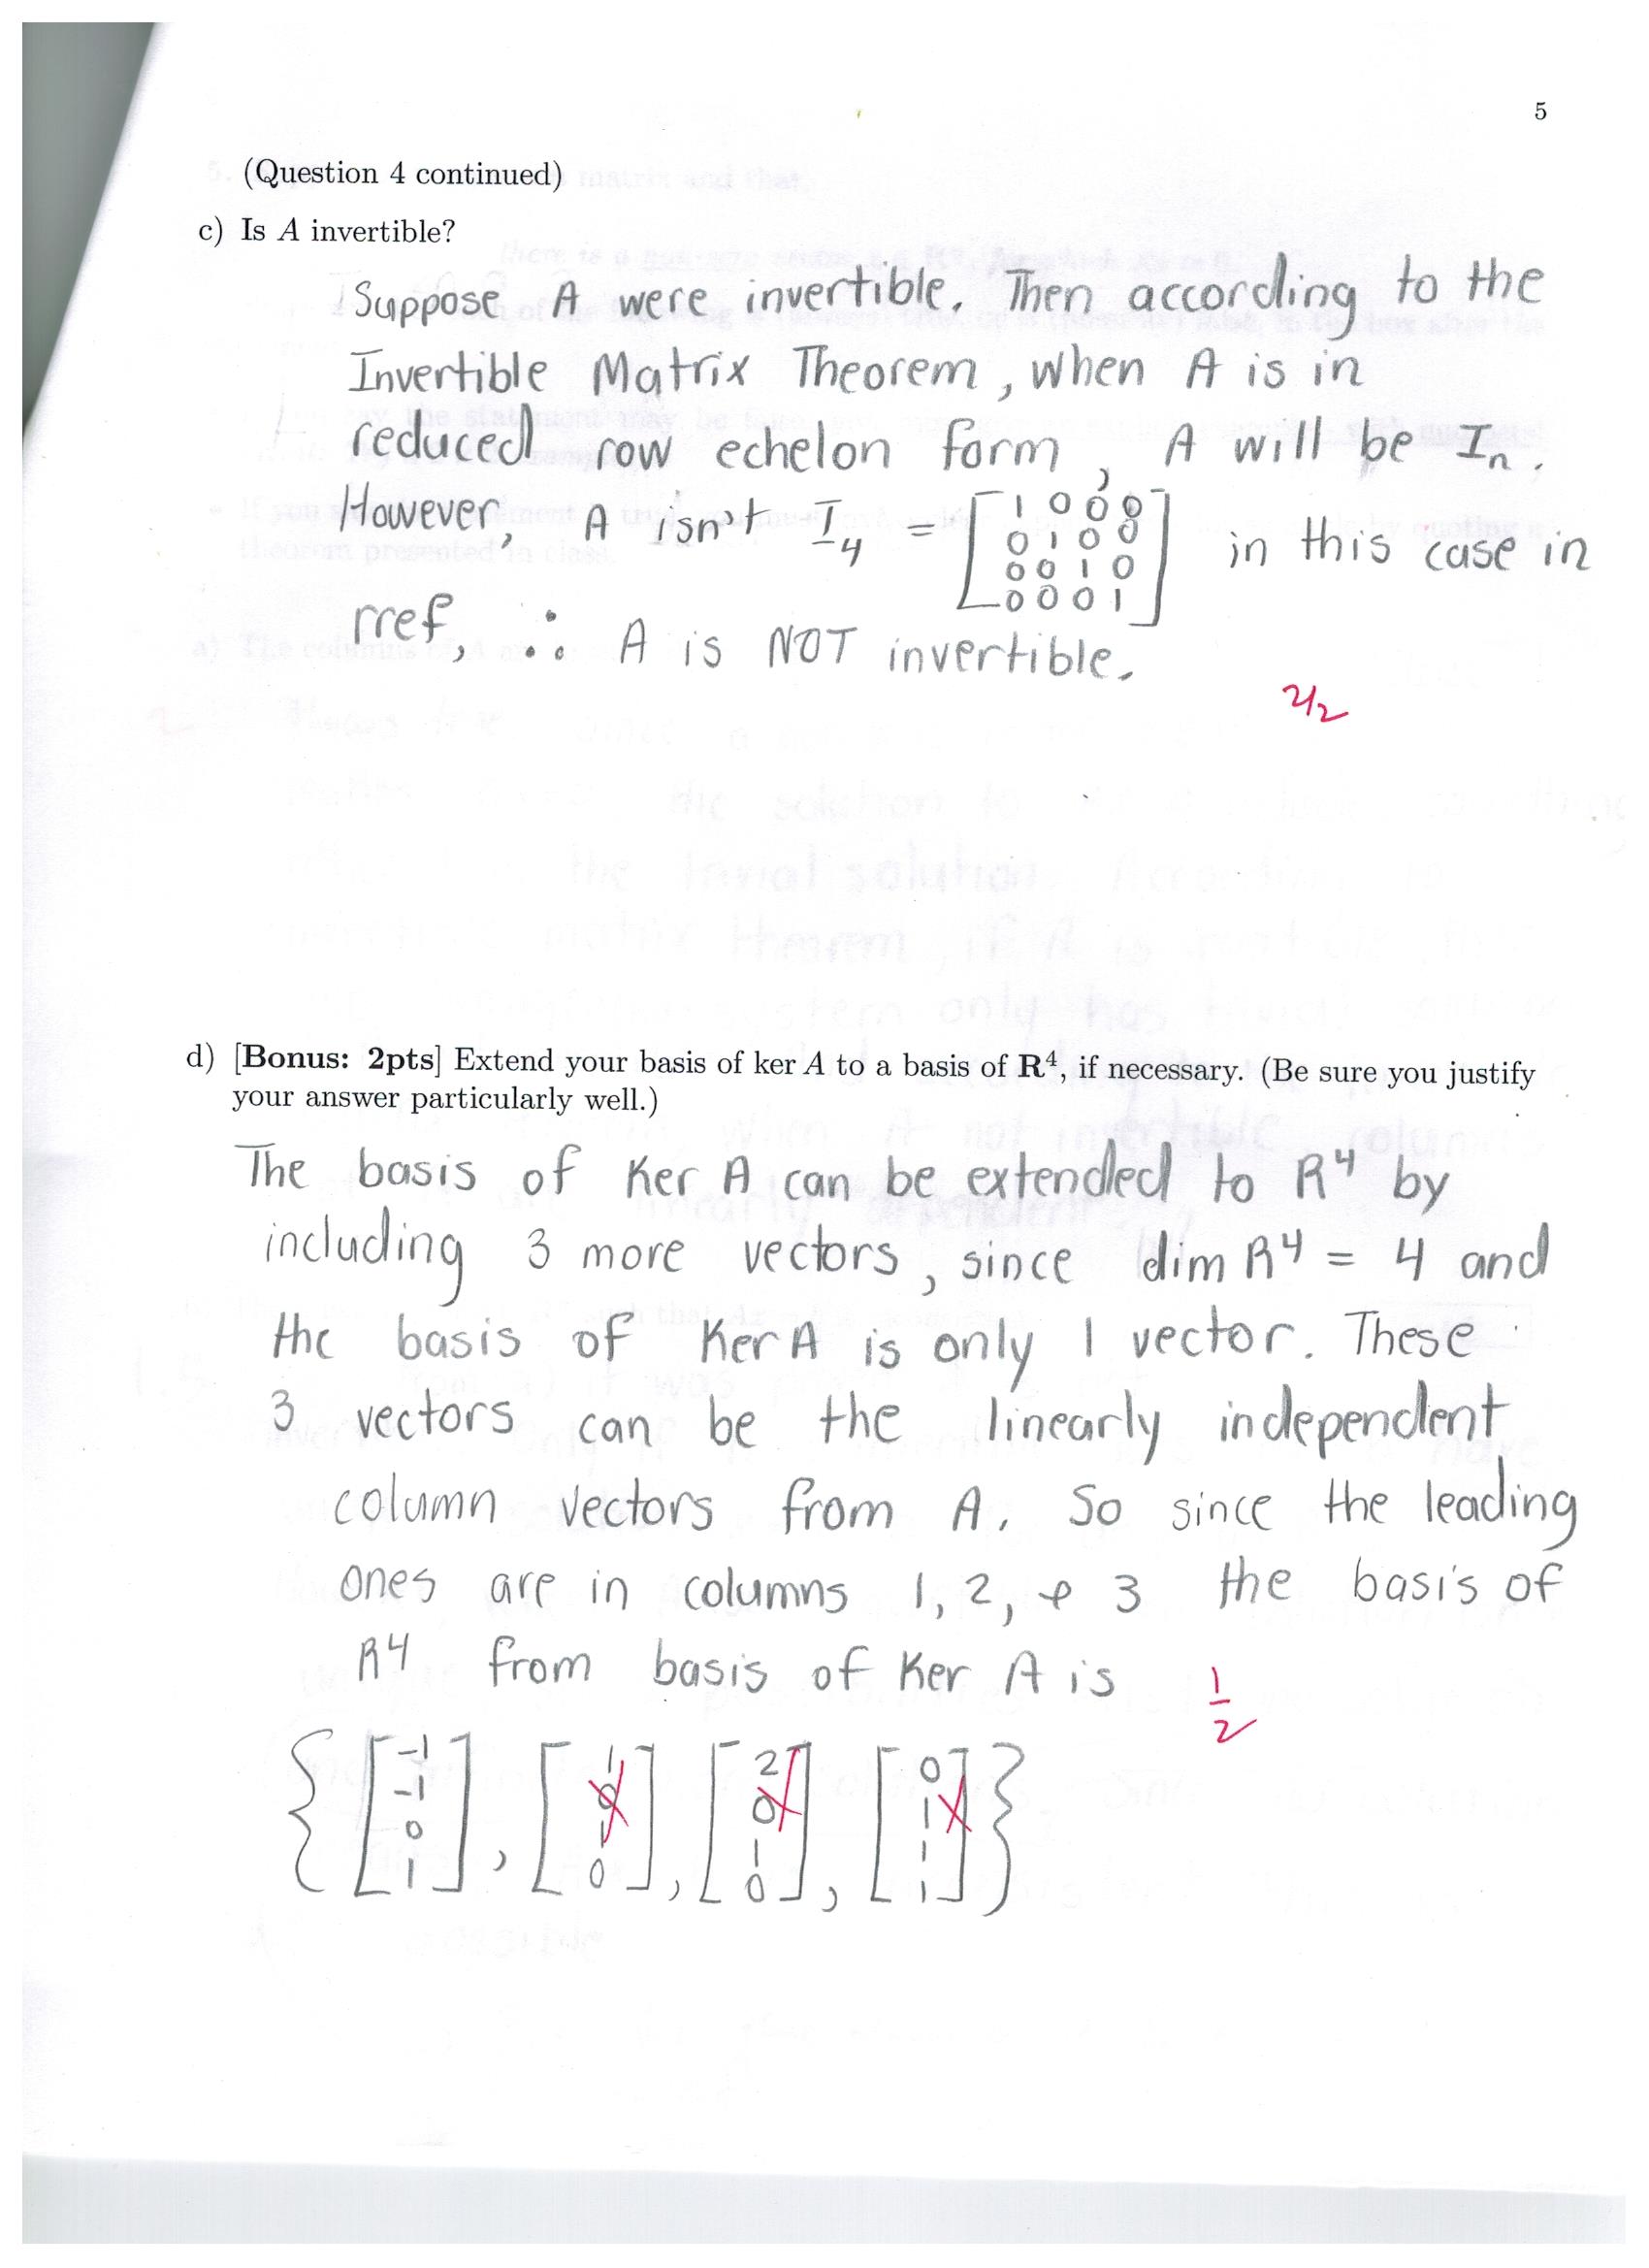 5
(Question 4 continued)
c) Is A invertible?
Suppose A were invertible. Then according to the
Invertible Matrix Theorem, when A is in
reduced row echelon form, A will be Iₙ.
However, A isn't I₄ = [1 0 0 0
0 1 0 0
0 0 1 0
0 0 0 1] in this case in
rref, ∴ A is NOT invertible.
2/2
d) [Bonus: 2pts] Extend your basis of ker A to a basis of R⁴, if necessary. (Be sure you justify
your answer particularly well.)
The basis of Ker A can be extended to R⁴ by
including 3 more vectors, since dim R⁴ = 4 and
the basis of Ker A is only 1 vector. These
3 vectors can be the linearly independent
column vectors from A. So since the leading
ones are in columns 1, 2, & 3 the basis of
R⁴ from basis of Ker A is
1/2
{[-1 -1 0 1], [1 0 1 0], [2 0 1 0], [0 1 1 1]}